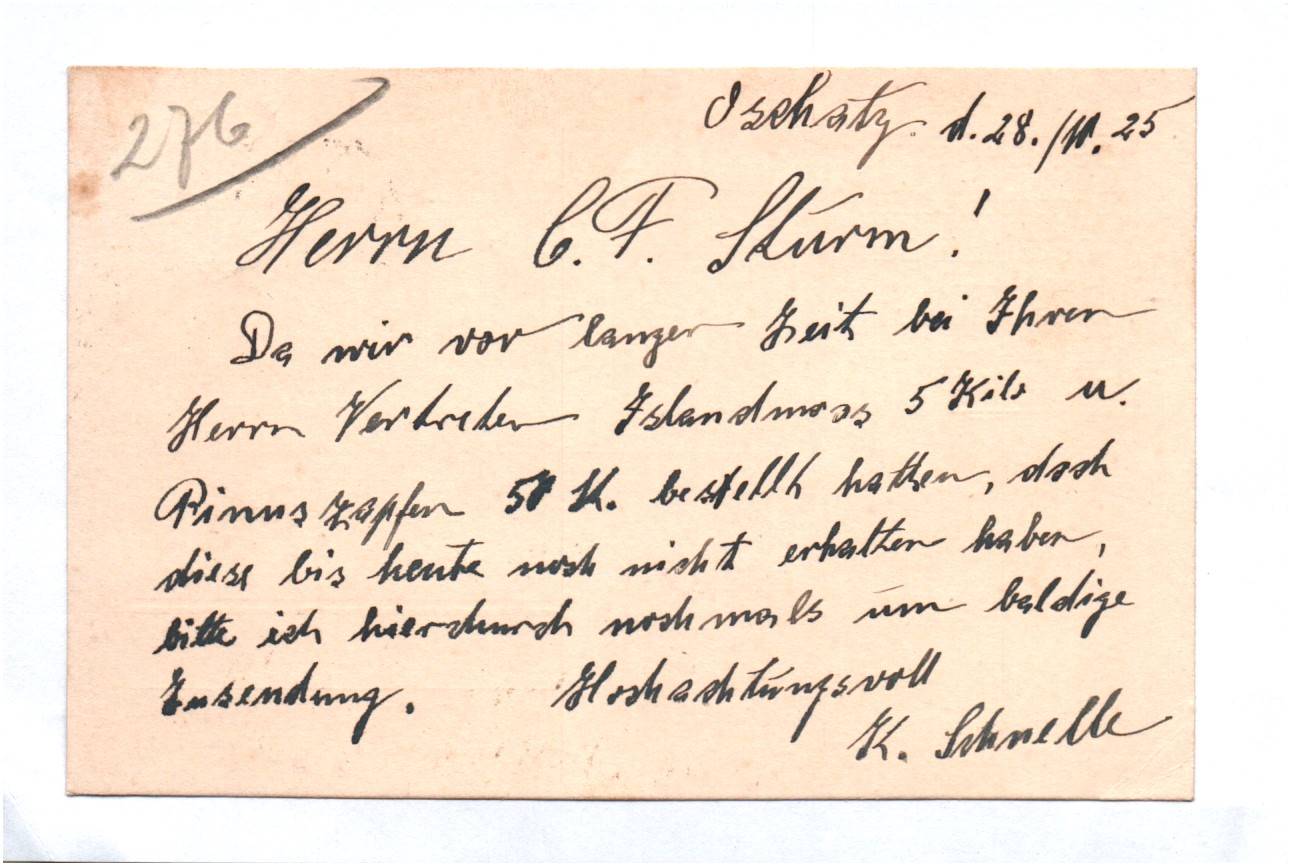 276
Oschatz. d. 28./10. 25
Herrn C. F. Sturm!
Da wir vor langer Zeit bei Ihren
Herrn Vertreter Islandmoos 5 Kilo u.
Pinuszapfen 50 K. bestellt hatten, doch
diese bis heute noch nicht erhalten haben,
bitte ich hierdurch nochmals um baldige
Zusendung. Hochachtungsvoll
K. Schnelle